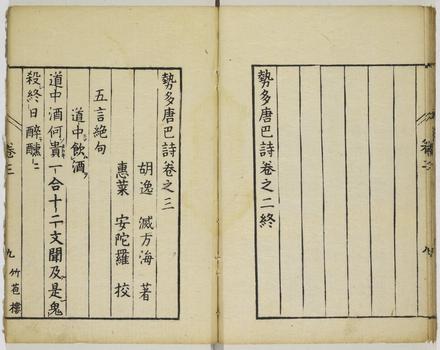 勢多唐巴詩卷之二終
勢多唐巴詩卷之三
胡逸 滅方海 著
惠萊 安陀羅 校
五言絶句
道中飲酒
道中酒何貴一合十二文聞及是鬼
殺終日醉醺〻
卷三
九 竹苞樓